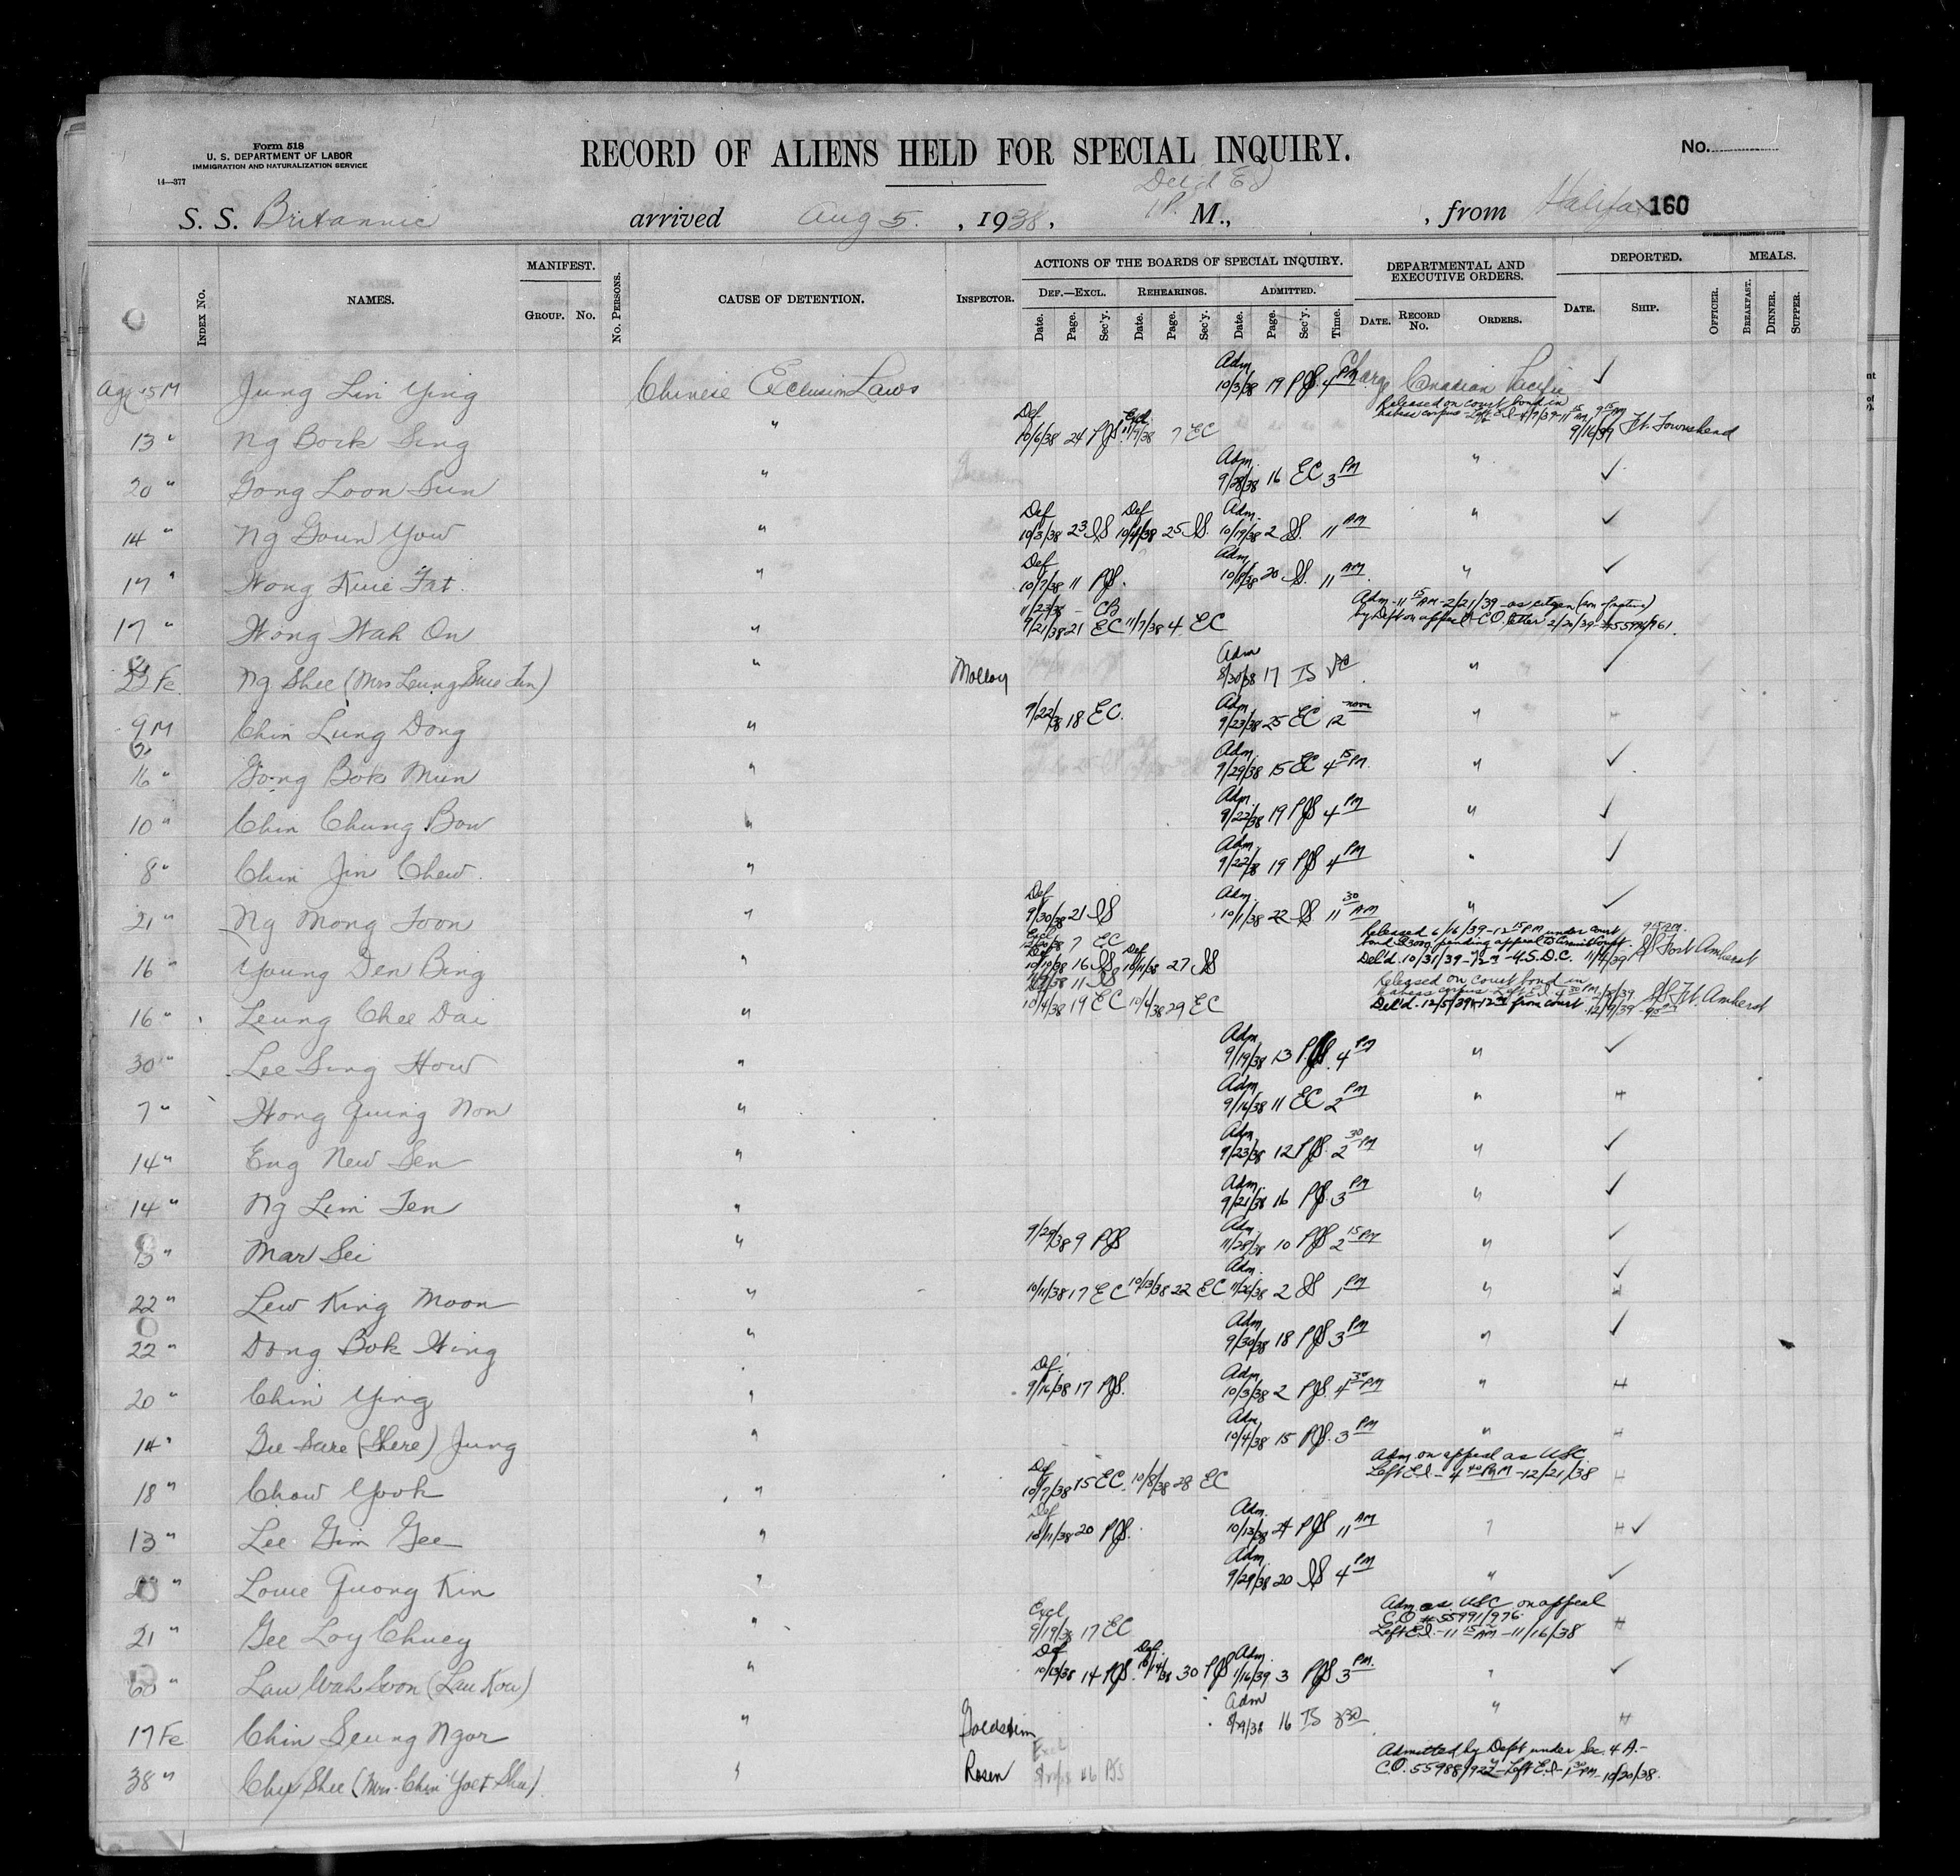 Form 518
U. S. DEPARTMENT OF LABOR
IMMIGRATION AND NATURALIZATION SERVICE
14—377
RECORD OF ALIENS HELD FOR SPECIAL INQUIRY.
No.
Del'd EI
S. S. Britannic arrived Aug 5, 1938, 1 P. M., , from Halifax 160
INDEX No. NAMES. MANIFEST. GROUP. No. No. PERSONS. CAUSE OF DETENTION. INSPECTOR. ACTIONS OF THE BOARDS OF SPECIAL INQUIRY. DEF.—EXCL. Date. Page. Sec'y. REHEARINGS. Date. Page. Sec'y. ADMITTED. Date. Page. Sec'y. Time. DEPARTMENTAL AND EXECUTIVE ORDERS. DATE. RECORD No. ORDERS. DEPORTED. DATE. SHIP. OFFICER. MEALS. BREAKFAST. DINNER. SUPPER.
Age 15 M Jung Lin Ying Chinese Exclusion Laws Adm. 10/3/38 19 PJS. 4 PM Charge Canadian Pacific ✓
13 " Ng Bock Sing " Def 10/6/38 24 PJS. Excl. 11/9/38 7 EC Released on court bond in habeas corpus - Left E.I. - 4/7/39 - 11 15 AM 9 15 AM 9/16/39 Ft. Townshend
20 " Gong Loon Sun " Adm. 9/28/38 16 EC 3 PM " ✓
14 " Ng Goun Yow " Def 10/3/38 23 IS Def 25 IS. Adm. 10/19/38 2 IS. 11 AM " ✓
17 " Wong Kwie Fat. " Def 10/7/38 11 PJS. Adm. 10/8/38 20 IS. 11 AM " ✓
17 " Wong Wah On " 11/23/38 - CB 9/21/38 21 EC 11/7/38 4 EC Adm - 11 15 AM - 2/21/39 - as citizen (son of native) by Dept on appeal - C.O. letter 2/20/39
23 Fe. Ng Shee (Mrs Leung Suie Lun) " Molloy Adm 8/30/38 17 TS " ✓
9 M Chin Lung Dong " 9/22/38 18 EC. Adm 9/23/38 25 EC 12 noon " H
16 " Gong Bok Mun " Adm. 9/29/38 15 EC 4 15 PM. " ✓
10 " Chin Chung Bow " Adm. 9/22/38 19 PJS 4 PM " ✓
8 " Chin Jin Chew. " Adm. 9/22/38 19 PJS 4 PM " ✓
21 " Ng Mong Toon " Def 9/30/38 21 IS Adm. 10/1/38 22 IS. 11 30 AM " ✓
16 " Young Den Bing " Excl 7 EC Def 10/10/38 16 IS Def 10/11/38 27 IS Released 6/16/39 - 12 15 PM under court bond pending appeal to Circuit Court. Del'd. 10/31/39 - U.S.D.C. 11/4/39 SS Fort Amherst
16 " Leung Chee Dai " 11 IS 10/4/38 19 EC 10/4/38 29 EC Released on court bond in habeas corpus - Left E.I. Del'd. 12/5/39 from court 12/9/39 SS Ft. Amherst
30 " Lee Sing How " Adm. 9/19/38 13 PJS. 4 PM " ✓
7 " Wong Quing Non " Adm. 9/16/38 11 EC 2 PM " H
14 " Eng New Sen " Adm. 9/23/38 12 PJS. 2 30 PM " ✓
14 " Ng Lim Ten " Adm. 9/21/38 16 PJS 3 PM " ✓
13 " Mar Sei " 9/29/38 9 PJS Adm. 11/28/38 10 PJS 2 15 PM " ✓
22 " Lew King Moon " 10/11/38 17 EC 10/13/38 22 EC Adm. 11/26/38 2 IS 1 PM " ✓ H
22 " Dong Bok Wing " Adm. 9/30/38 18 PJS 3 PM " ✓
20 " Chin Ying " Def. 9/16/38 17 PJS. Adm. 10/3/38 2 PJS. 4 30 PM " H
14 " Gee Sare (Shere) Jung " Adm 10/4/38 15 PJS. 3 PM " H
18 " Chow Yook " Def 10/7/38 15 EC 10/8/38 28 EC Adm. on appeal as USC. Left E.I. - 4 40 PM - 12/21/38 H
13 " Lee Gim Gee " Def 10/11/38 20 PJS. Adm. 10/13/38 24 PJS 11 AM " H ✓
" Louie Quong Kin " Adm. 9/29/38 20 IS 4 PM " ✓
21 " Gee Loy Chuey " Excl 9/19/38 17 EC Adm. as USC. on appeal C.O. # 55991/976. Left E.I. - 11 15 AM - 11/16/38 H
60 " Lau Wah Soon (Lau Kow) " Def 10/13/38 14 PJS. Def. 10/14/38 30 PJS Adm. 1/16/39 3 PJS 3 PM. " ✓
17 Fe Chin Seung Ngor " Goldstein Adm 16 TS 3 30 " H
38 " Chin Shee (Mrs. Chin Yoet Shu) " Rosen Excl Admitted by Dept under Sec. 4 A. - C.O. 55988/927 - Left E.I. - 1 30 PM - 10/20/38.